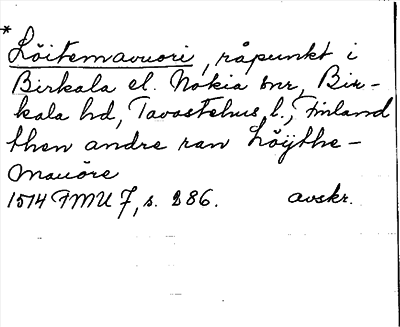 *
Löitemavuori, råpunkt i
Birkala el. Nokia snr, Bir-
kala hd, Tavastehus l., Finland
then andre ran Löÿthe-
mauöre
1514 FMU 7, s. 286. avskr.